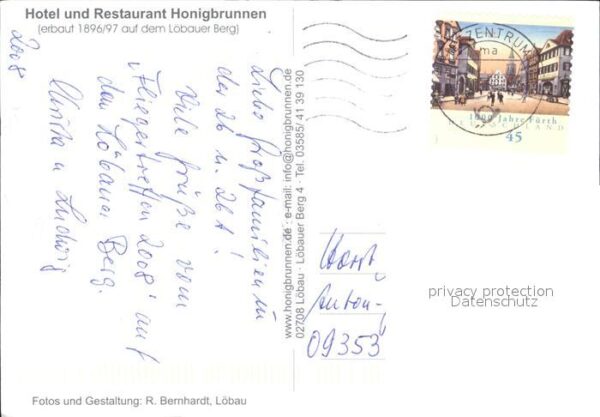 Hotel und Restaurant Honigbrunnen
(erbaut 1896/97 auf dem Löbauer Berg)
2008
Liebe Großfamilien in
der 26 u. 26 A!
Viele Grüße vom
Fliegertreffen 2008 auf
dem Löbauer Berg.
Ulrike u. Ludwig
www.honigbrunnen.de · e-mail: info@honigbrunnen.de
02708 Löbau · Löbauer Berg 4 · Tel. 03585/ 41 39 130
ZENTRUM
ma
1000 Jahre Fürth
DEUTSCHLAND
45
Horst
Anton-
09353
privacy protection
Datenschutz
Fotos und Gestaltung: R. Bernhardt, Löbau